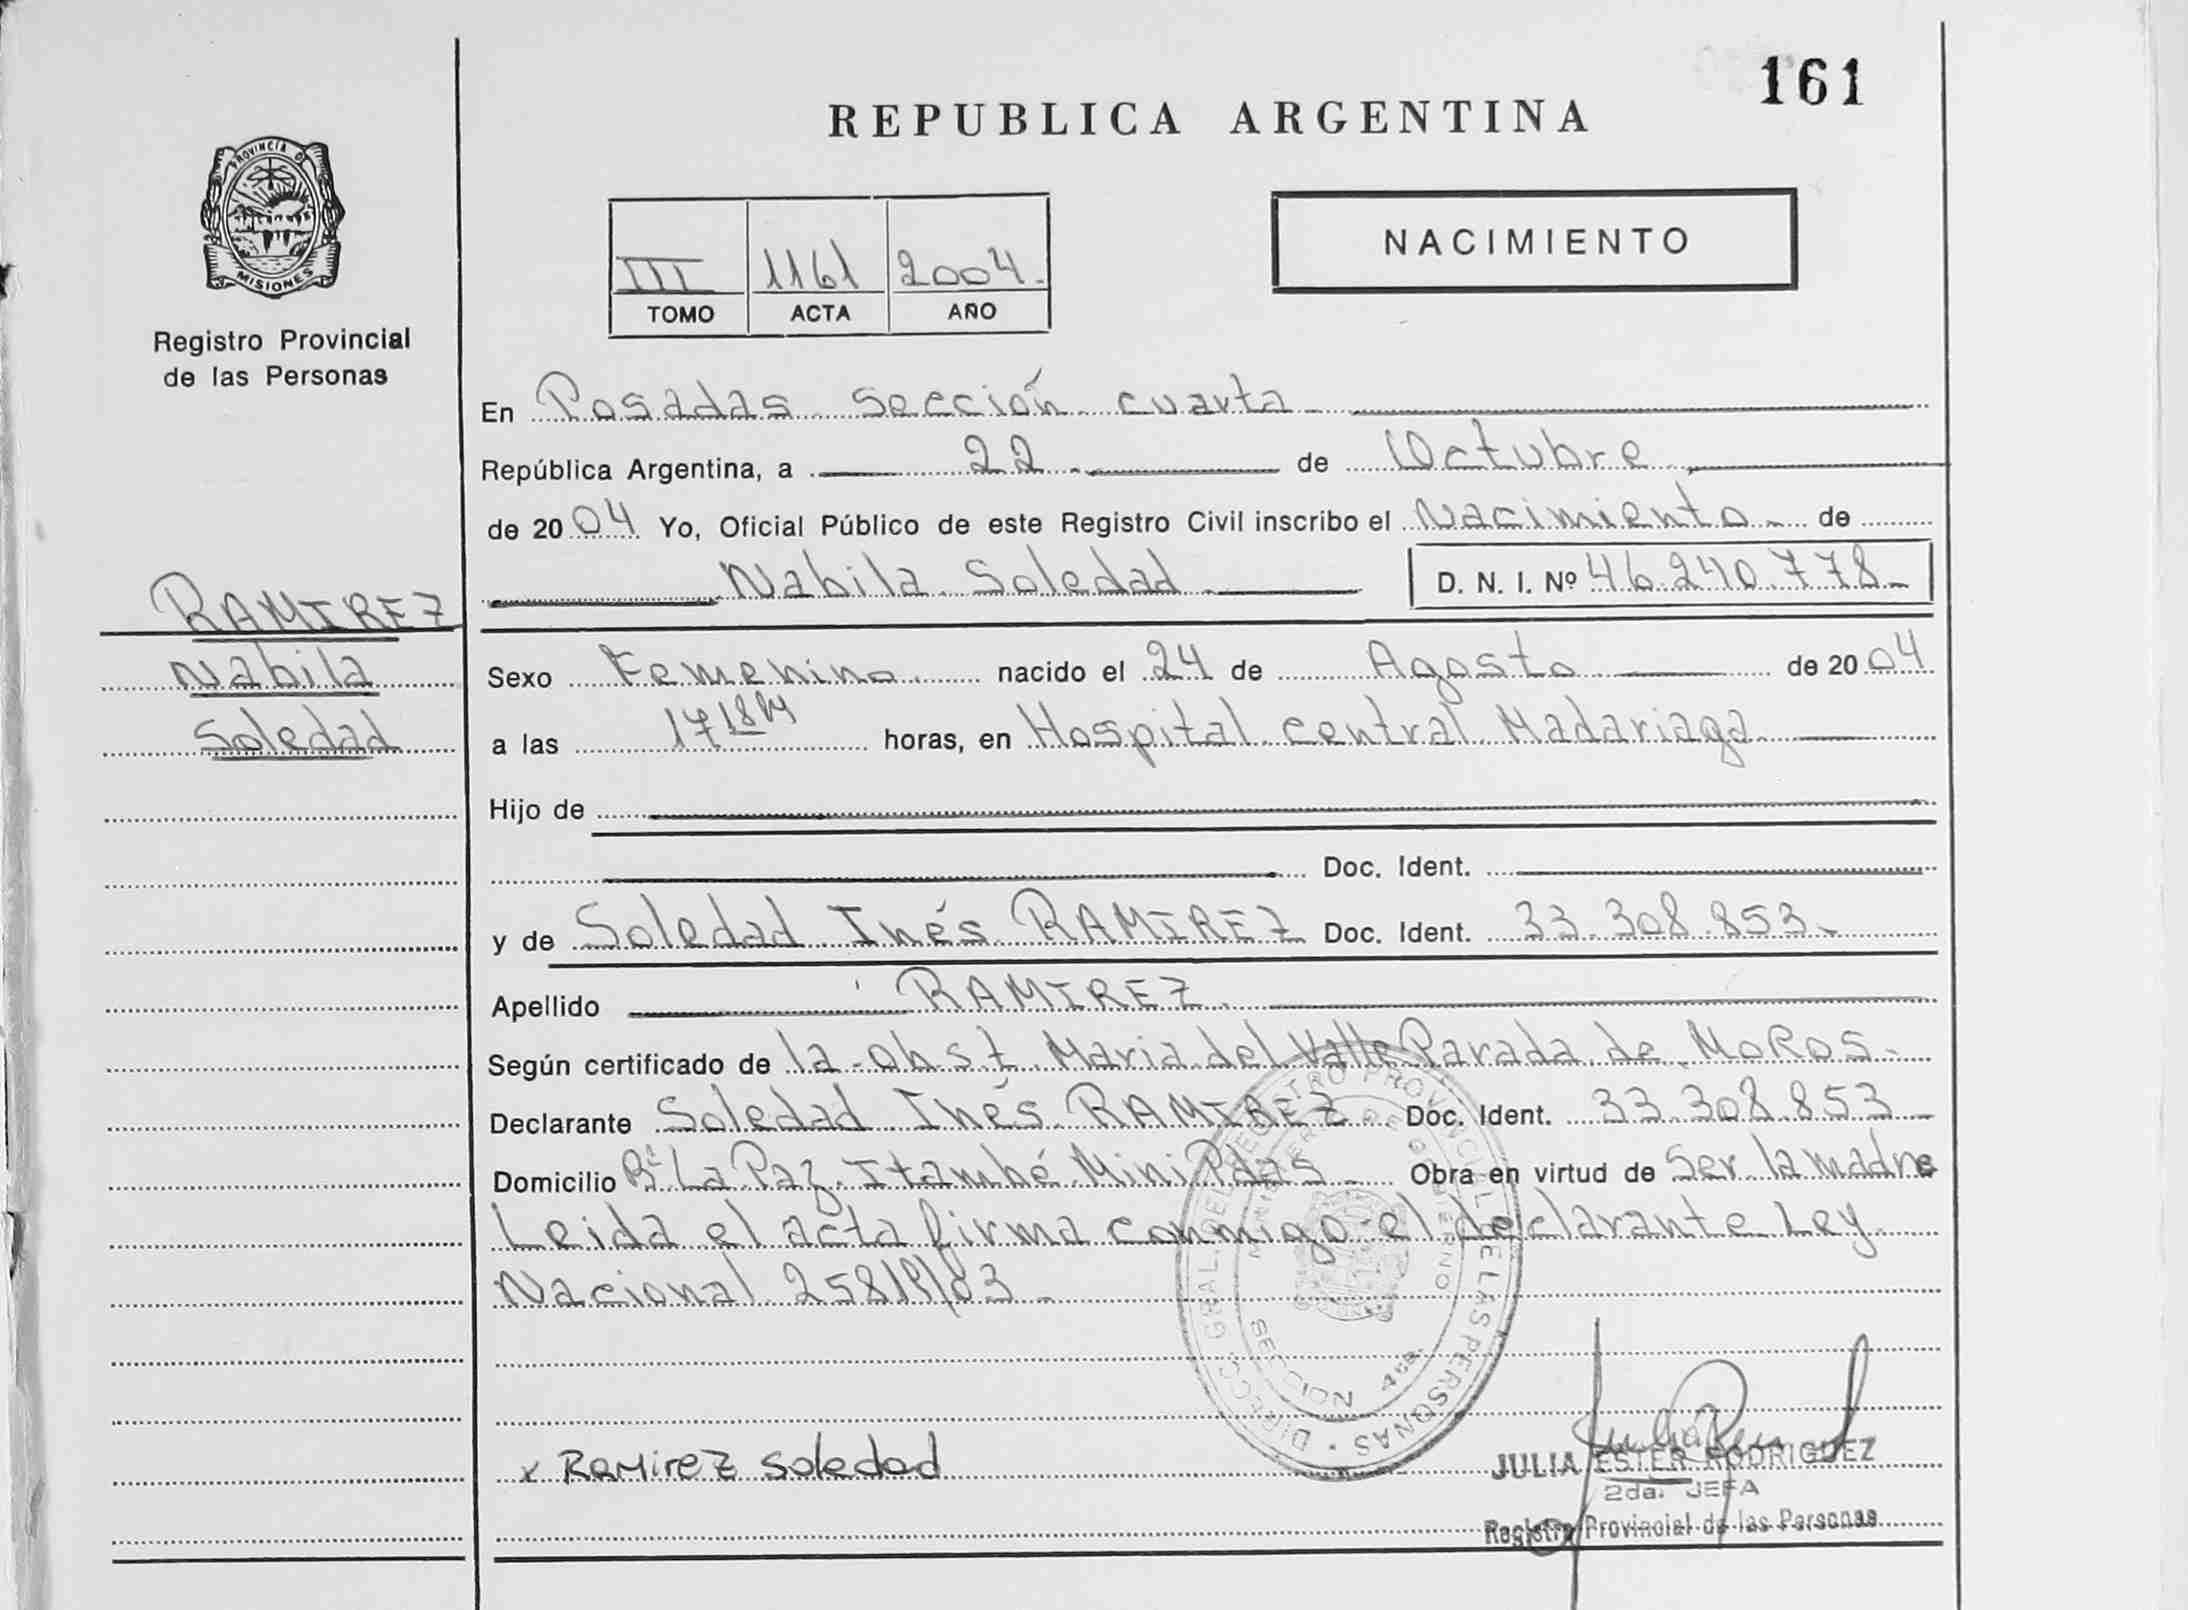 161
REPUBLICA ARGENTINA
PROVINCIA DE
MISIONES
Registro Provincial
de las Personas
III 1161 2004.
TOMO ACTA AÑO
NACIMIENTO
En Posadas Sección cuarta
República Argentina, a 22 de Octubre
de 2004 Yo, Oficial Público de este Registro Civil inscribo el Nacimiento de
Nabila Soledad D. N. I. Nº 46.240.778
RAMIREZ
Nabila
Soledad
Sexo Femenino nacido el 24 de Agosto de 2004
a las 17 18 horas, en Hospital central Madariaga
Hijo de
Doc. Ident.
y de Soledad Inés RAMIREZ Doc. Ident. 33.308.853
Apellido RAMIREZ
Según certificado de la obst Maria del Valle Parada de MoRos
Declarante Soledad Inés RAMIREZ Doc. Ident. 33.308.853
Domicilio Bº La Paz Itambé Mini Pdas Obra en virtud de Ser la madre
Leida el acta firma conmigo el declarante Ley
Nacional 25819/03
DIRECC. GRAL. DEL REGISTRO PROVINCIAL DE LAS PERSONAS
MINISTERIO DE GOBIERNO
SECCION 4ta.
x RamireZ Soledad
JULIA ESTER RODRIGUEZ
2da. JEFA
Registro Provincial de las Personas